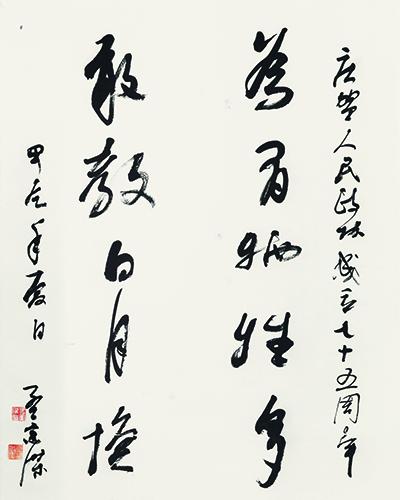 庆贺人民政协成立七十五周年
为有牺牲多
敢教日月换
甲辰年夏日